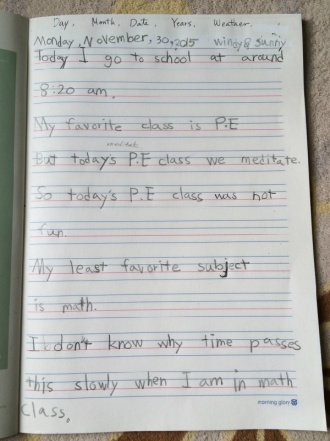 Day, Month, Date, Years, Weather.
Monday, November, 30, 2015 windy & sunny
Today I go to school at around
8:20 am.
My favorite class is P.E
But today's P.E class we meditate.
So today's P.E class was not
fun.
My least favorite subject
is math.
I don't know why time passes
this slowly when I am in math
class.
morning glory